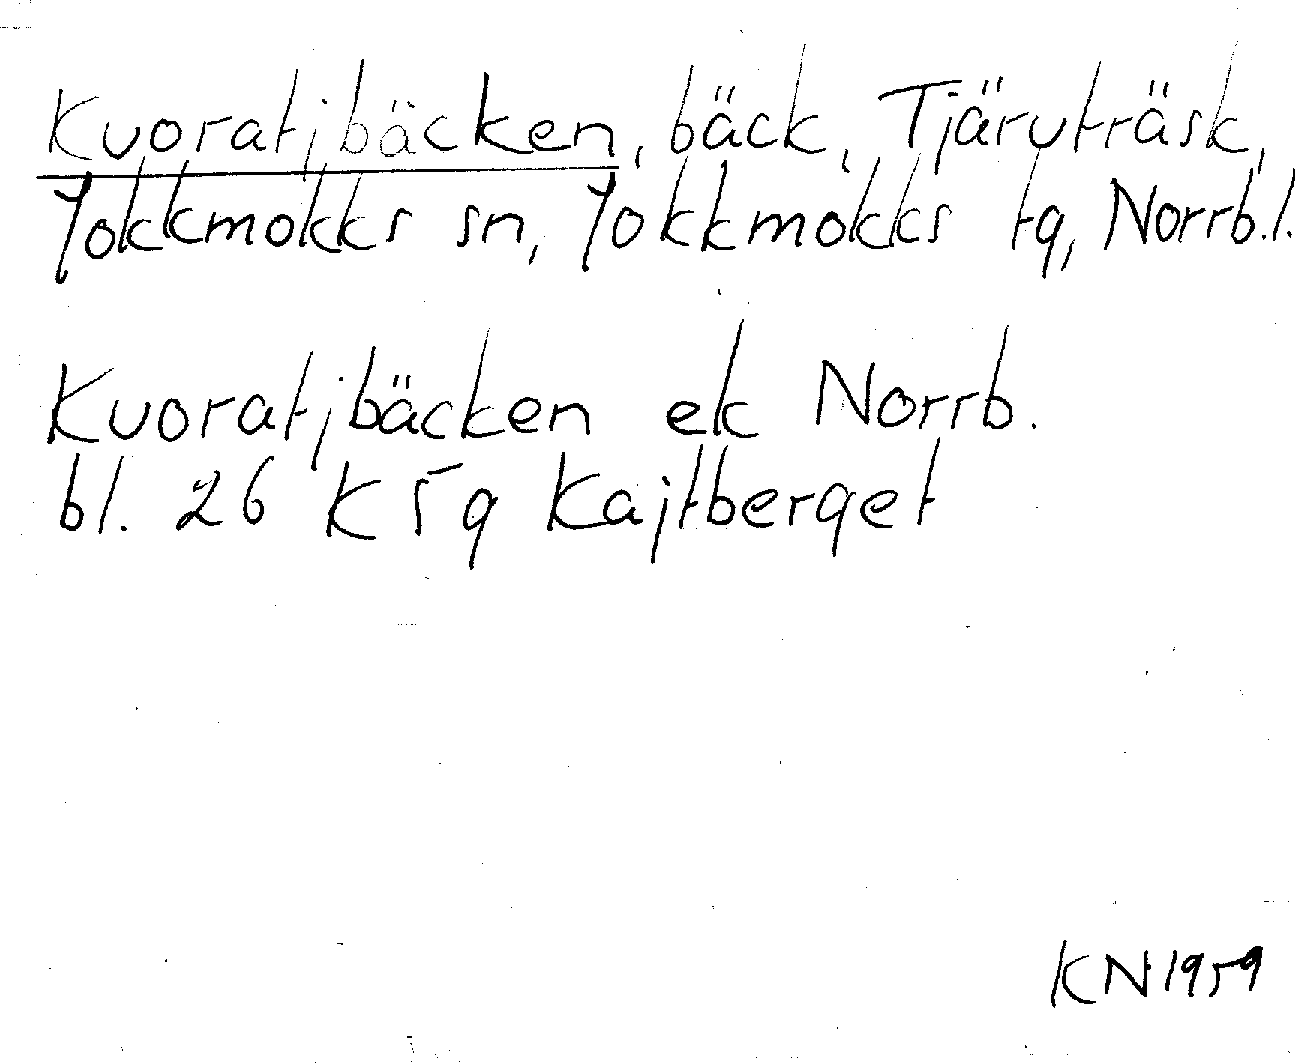 Kuoratjbäcken, bäck, Tjäruträsk,
Jokkmokks sn, Jokkmokks tg, Norrb.l.
Kuoratjbäcken ek Norrb.
bl. 26 K 5g Kajtberget
KN 1959